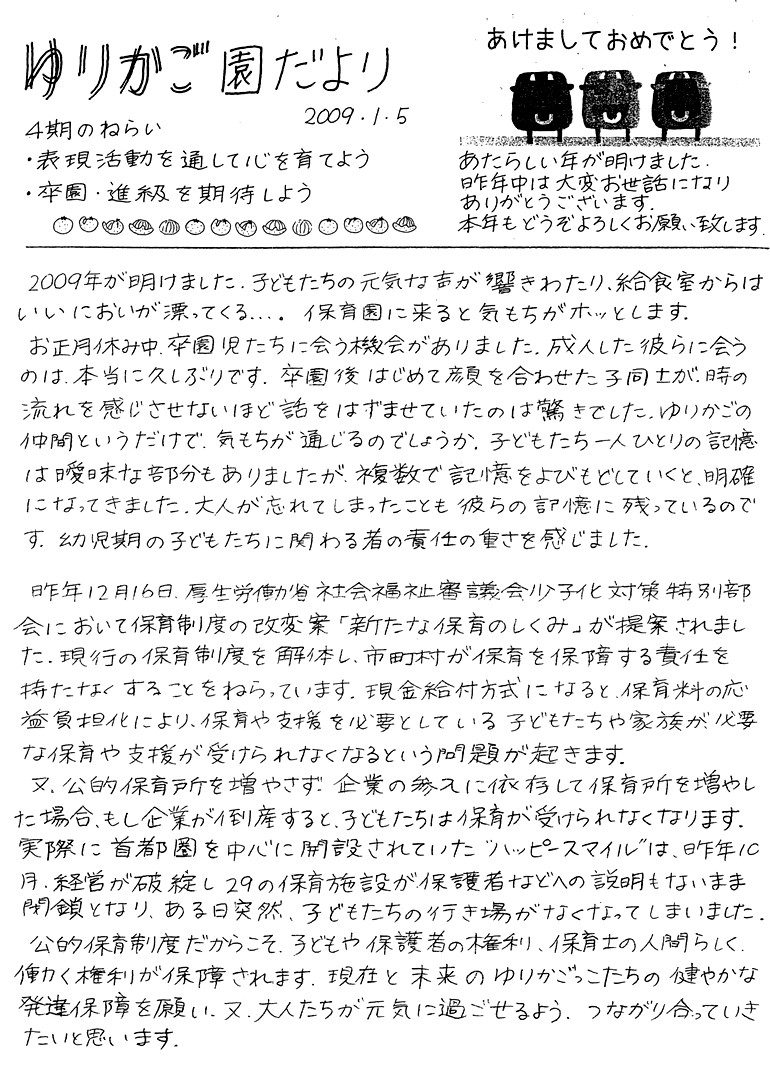 ゆりかご園だより
2009.1.5
4期のねらい
・表現活動を通して心を育てよう
・卒園・進級を期待しよう
あけましておめでとう!
あたらしい年が明けました.
昨年中は大変お世話になり
ありがとうございます.
本年もどうぞよろしくお願い致します.
2009年が明けました.子どもたちの元気な声が響きわたり、給食室からは
いいにおいが漂ってくる….保育園に来ると気もちがホッとします.
お正月休み中.卒園児たちに会う機会がありました.成人した彼らに会う
のは.本当に久しぶりです.卒園後はじめて顔を合わせた子同士が.時の
流れを感じさせないほど話をはずませていたのは驚きでした.ゆりかごの
仲間というだけで.気もちが通じるのでしょうか.子どもたち一人ひとりの記憶
は曖昧な部分もありましたが.複数で記憶をよびもどしていくと、明確
になってきました.大人が忘れてしまったことも彼らの記憶に残っているので
す.幼児期の子どもたちに関わる者の責任の重さを感じました.
昨年12月16日.厚生労働省社会福祉審議会少子化対策特別部
会において保育制度の改変案「新たな保育のしくみ」が提案されまし
た.現行の保育制度を解体し、市町村が保育を保障する責任を
持たなくすることをねらっています.現金給付方式になると、保育料の応
益負担化により、保育や支援を必要としている子どもたちや家族が.必要
な保育や支援が受けられなくなるという問題が起きます.
又、公的保育所を増やさず.企業の参入に依存して保育所を増やし
た場合、もし企業が倒産すると、子どもたちは保育が受けられなくなります.
実際に首都圏を中心に開設されていた"ハッピースマイル"は、昨年10
月.経営が破綻し29の保育施設が.保護者などへの説明もないまま
閉鎖となり、ある日突然、子どもたちの行き場がなくなってしまいました.
公的保育制度だからこそ.子どもや保護者の権利、保育士の人間らしく.
働く権利が保障されます.現在と未来のゆりかごっこたちの健やかな
発達保障を願い.又.大人たちが元気に過ごせるよう.つながり合っていき
たいと思います.